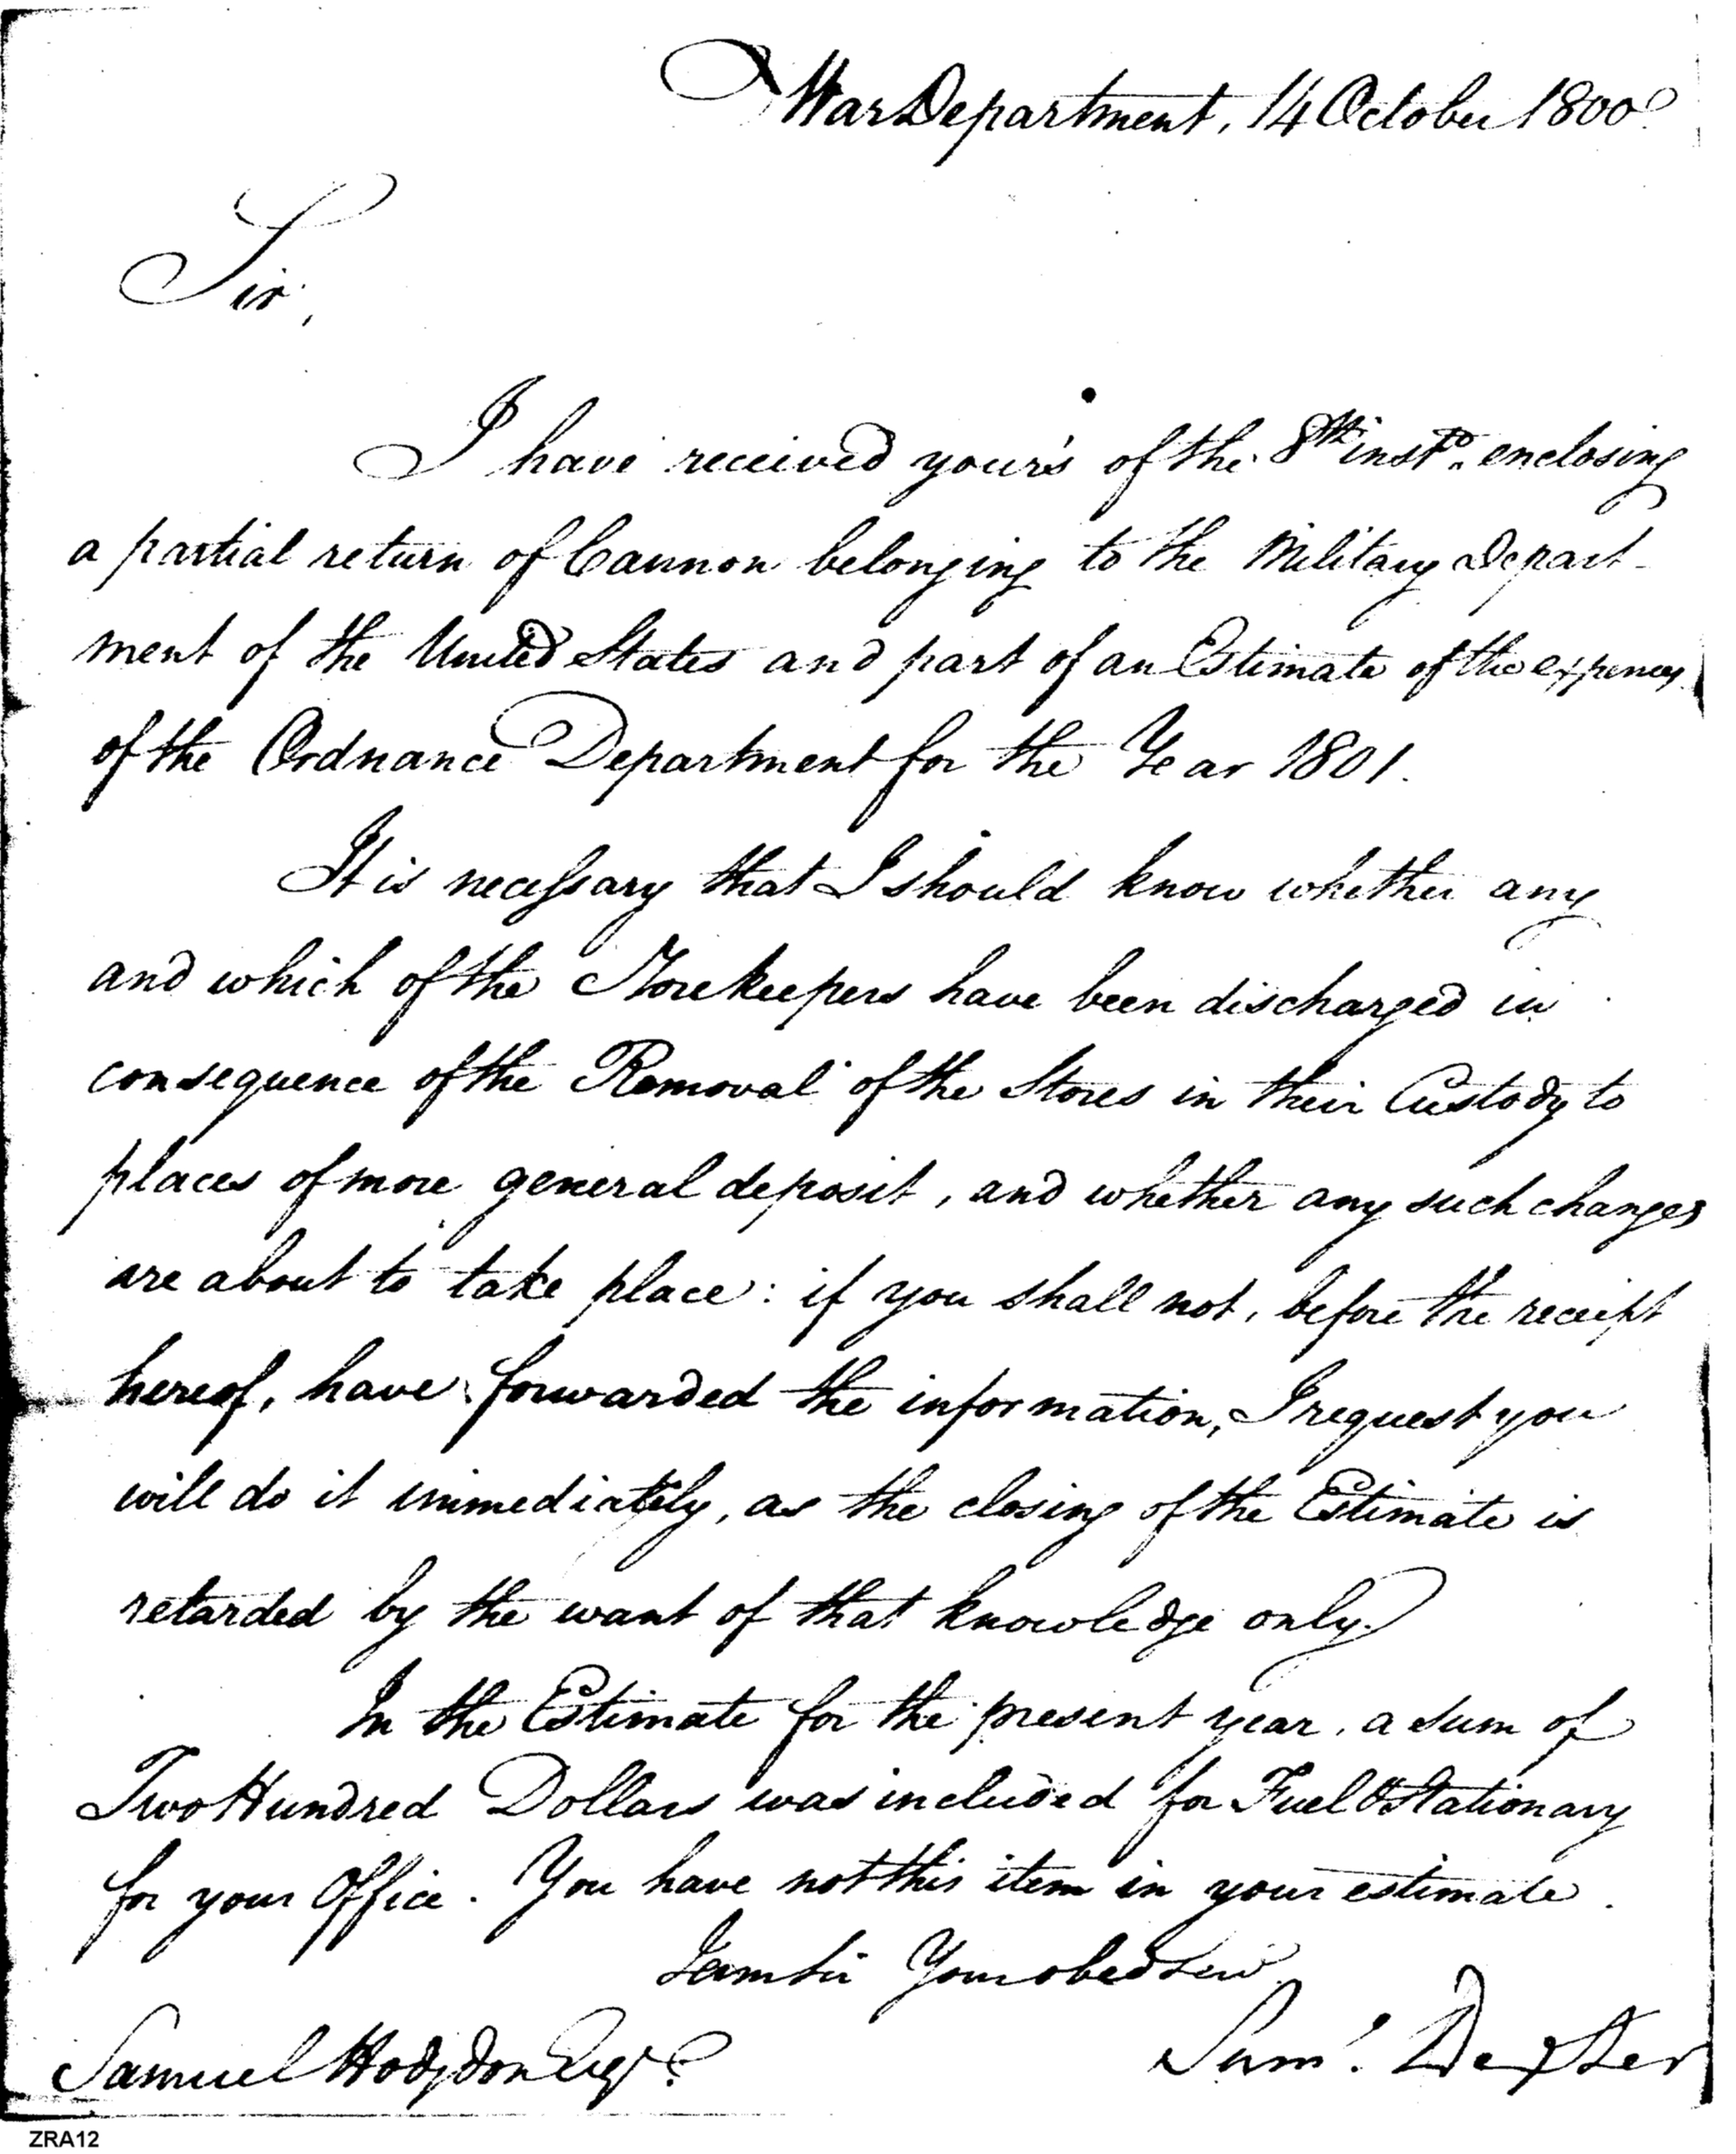 War Department, 14 October 1800.
Sir,
I have received your's of the 8th inst. enclosing
a partial return of Cannon belonging to the Military Depart-
ment of the United States and part of an Estimate of the expences
of the Ordnance Department for the Year 1801.
It is necessary that I should know whether any
and which of the Storekeepers have been discharged in
consequence of the Removal of the Stores in their Custody to
places of more general deposit, and whether any such changes
are about to take place: if you shall not, before the receipt
hereof, have forwarded the information, I request you
will do it immediately, as the closing of the Estimate is
retarded by the want of that knowledge only.
In the Estimate for the present year, a sum of
Two Hundred Dollars was included for Fuel & Stationary
for your Office. You have not this item in your estimate.
I am Sir Your obed Serv.
Samuel Hodgdon Esqr. Saml. Dexter
ZRA12